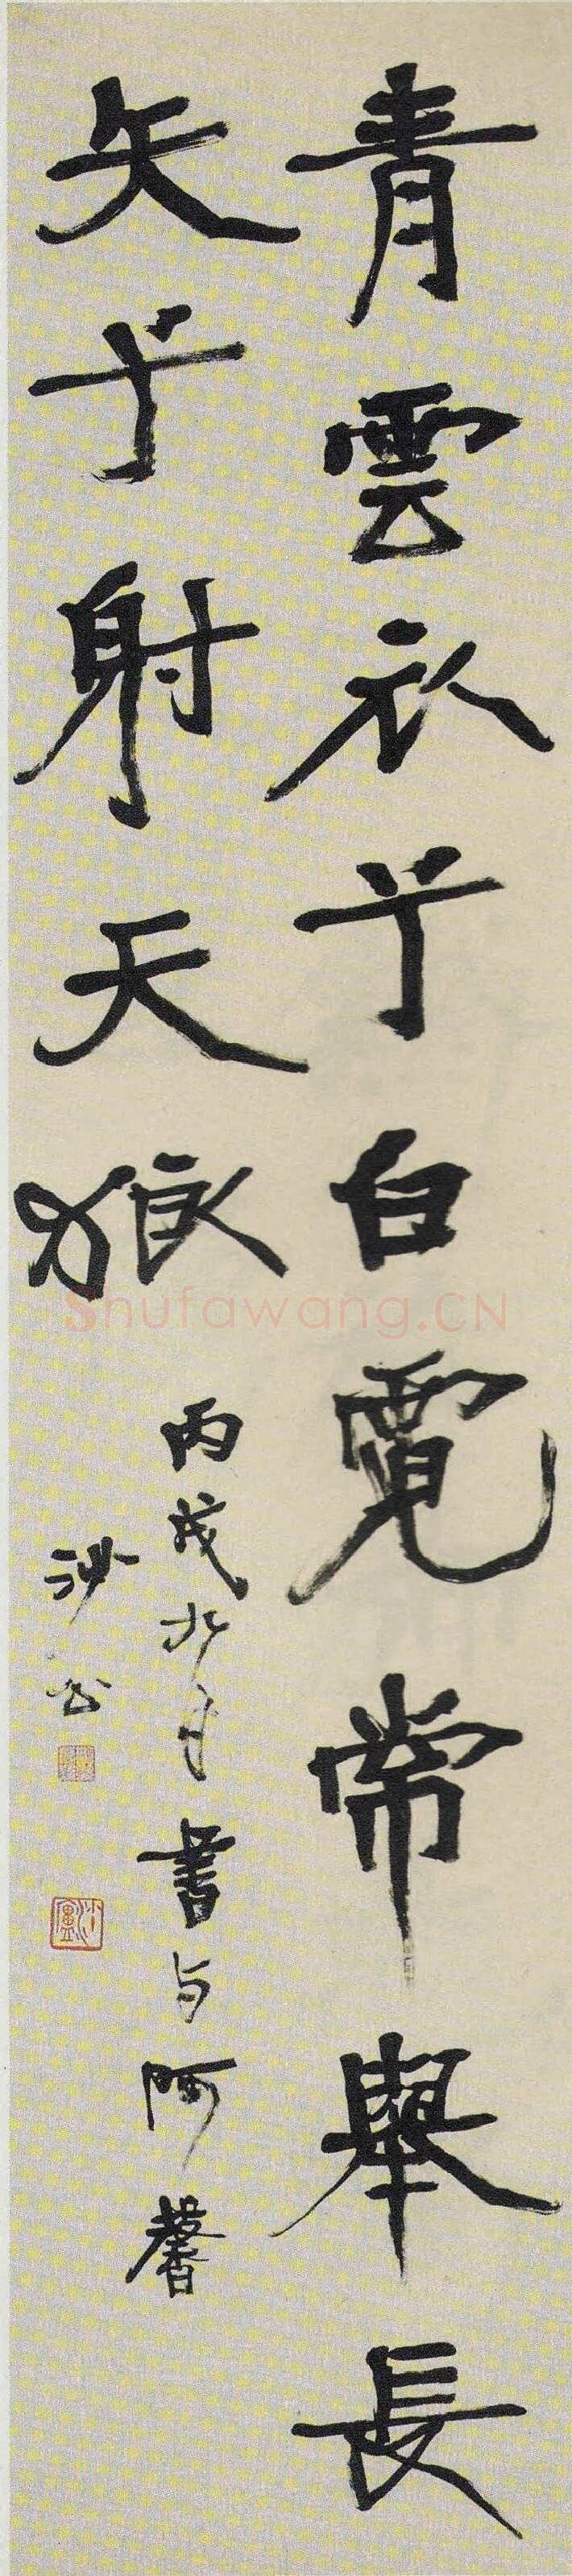 青雲衣兮白霓常舉長
矢兮射天狼
丙戌九月書与阿馨
沙公
Shufawang.CN